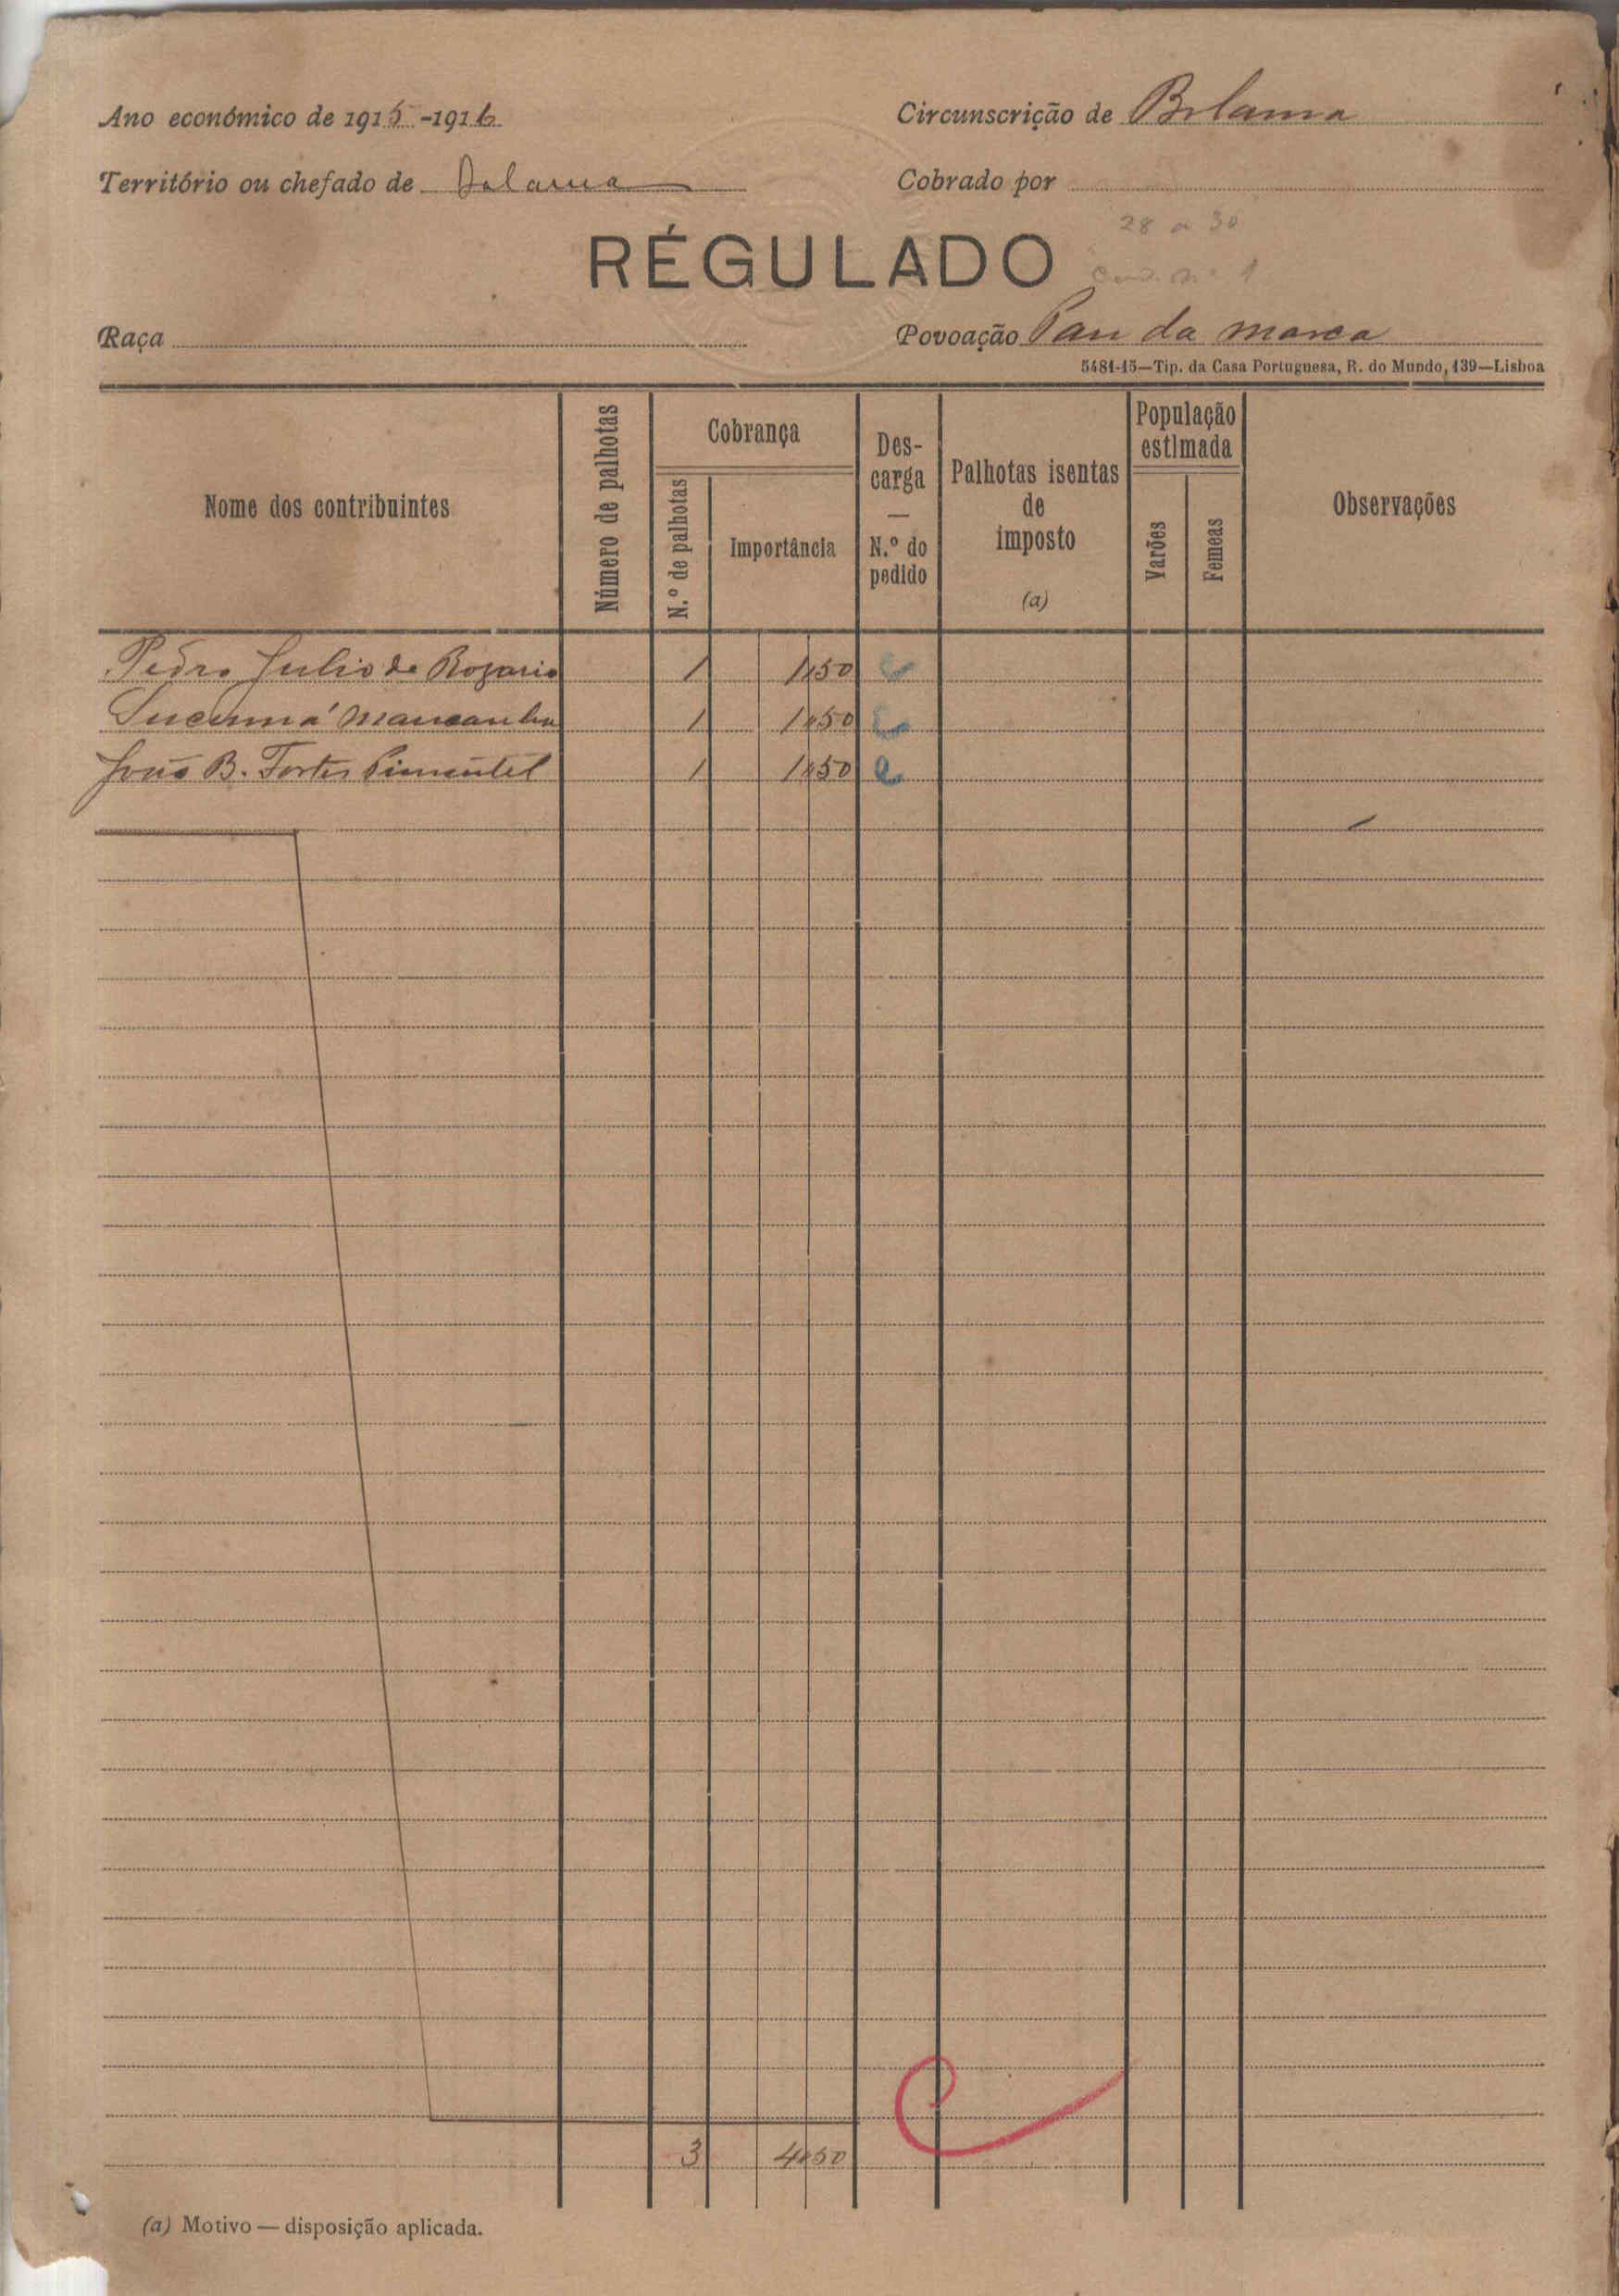 Ano económico de 1915-1916
Circunscrição de Bolama
Território ou chefado de Bolama
Cobrado por
28 a 30
RÉGULADO
Cad. n.º 1
Raça
Povoação Pau da marca
5481-15—Tip. da Casa Portuguesa, R. do Mundo, 139—Lisboa
Nome dos contribuintes
Número de palhotas
Cobrança
N.º de palhotas
Importância
Des-
carga
—
N.º do
pedido
Palhotas isentas
de
imposto
(a)
População
estimada
Varões
Femeas
Observações
Pedro Julio do Rozario 1 1$50
Mancanha 1 1$50
João B. Fortes Pimentel 1 1$50
3 4$50
(a) Motivo — disposição aplicada.